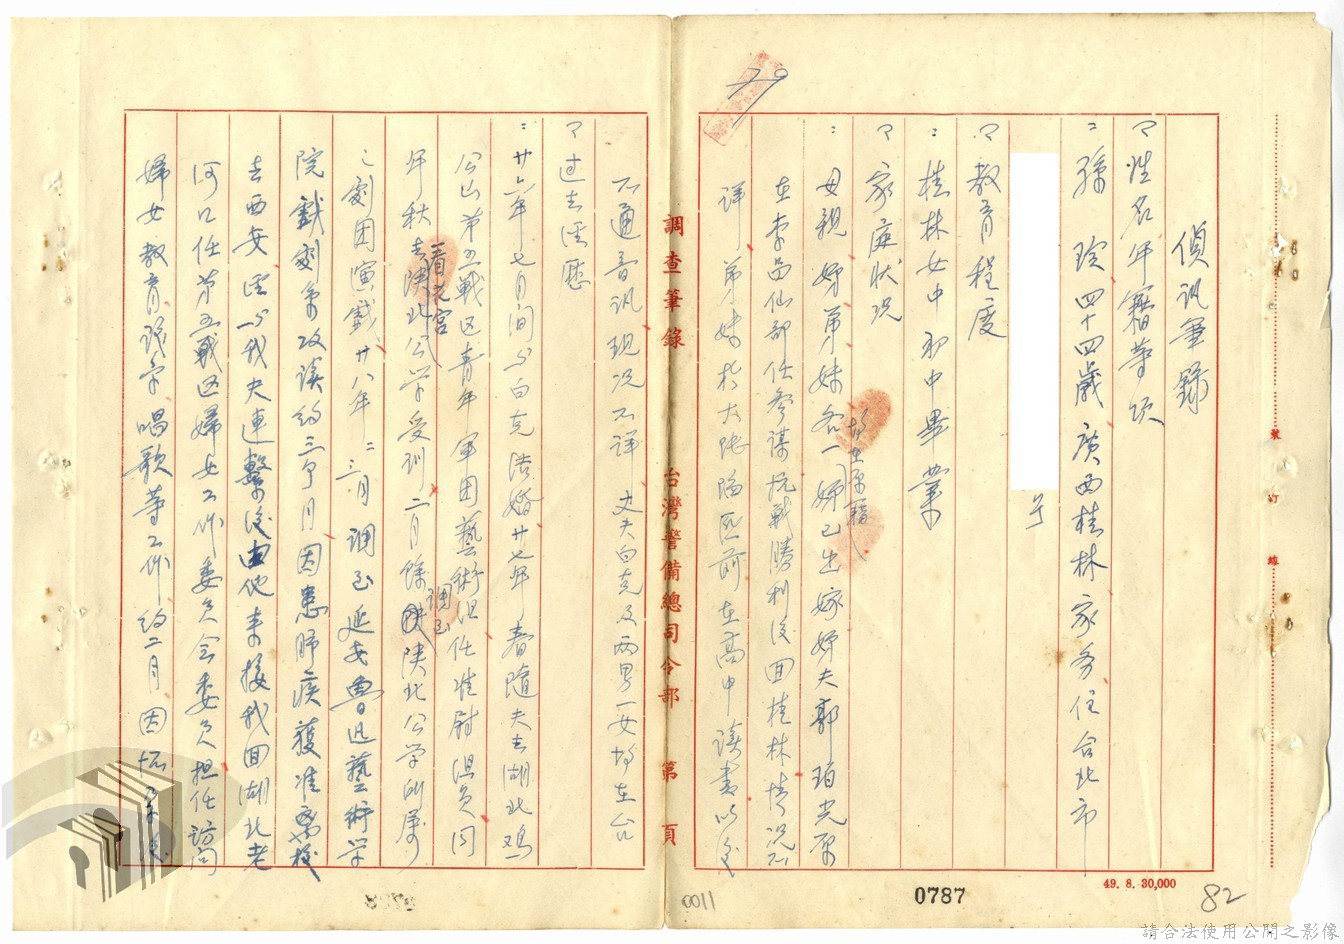 偵訊筆錄
問 姓名年籍等項
：孫玲 四十四歲 廣西桂林 家務 住台北市
号
問 教育程度
：桂林女中初中畢業
問 家庭狀況
：母親姊弟妹各一 姊已出嫁姊夫郭珀光原
均在原籍
在李品仙部任參謀抗戰勝利後回桂林情況不
詳 弟妹於大陸陷匪前在高中讀書以後
不通音訊現況不詳 丈夫白克及兩男一女均在台
問 过去經歷
：廿六年七月间与白克结婚廿七年春隨夫去湖北鸡
公山第五戰区青年軍团藝術組任准尉组员同
年秋去陝北公学受训二月餘 陝北公学所屬
看花宮
調至
劇団演戲廿八年二三月調至延安魯迅藝術学
院戲劇系攻读约三个月因患肺疾獲准离校
去西安 経与我夫連繫後由他来接我回湖北老
河口任第五戰区婦女工作委员会委员担任訪问
婦女教育識字唱歌等工作约二月因怀孕
調查筆錄 台灣警備總司令部 第 頁
裝 訂 線
49. 8. 30,000
0787
0011
82
請合法使用公開之影像